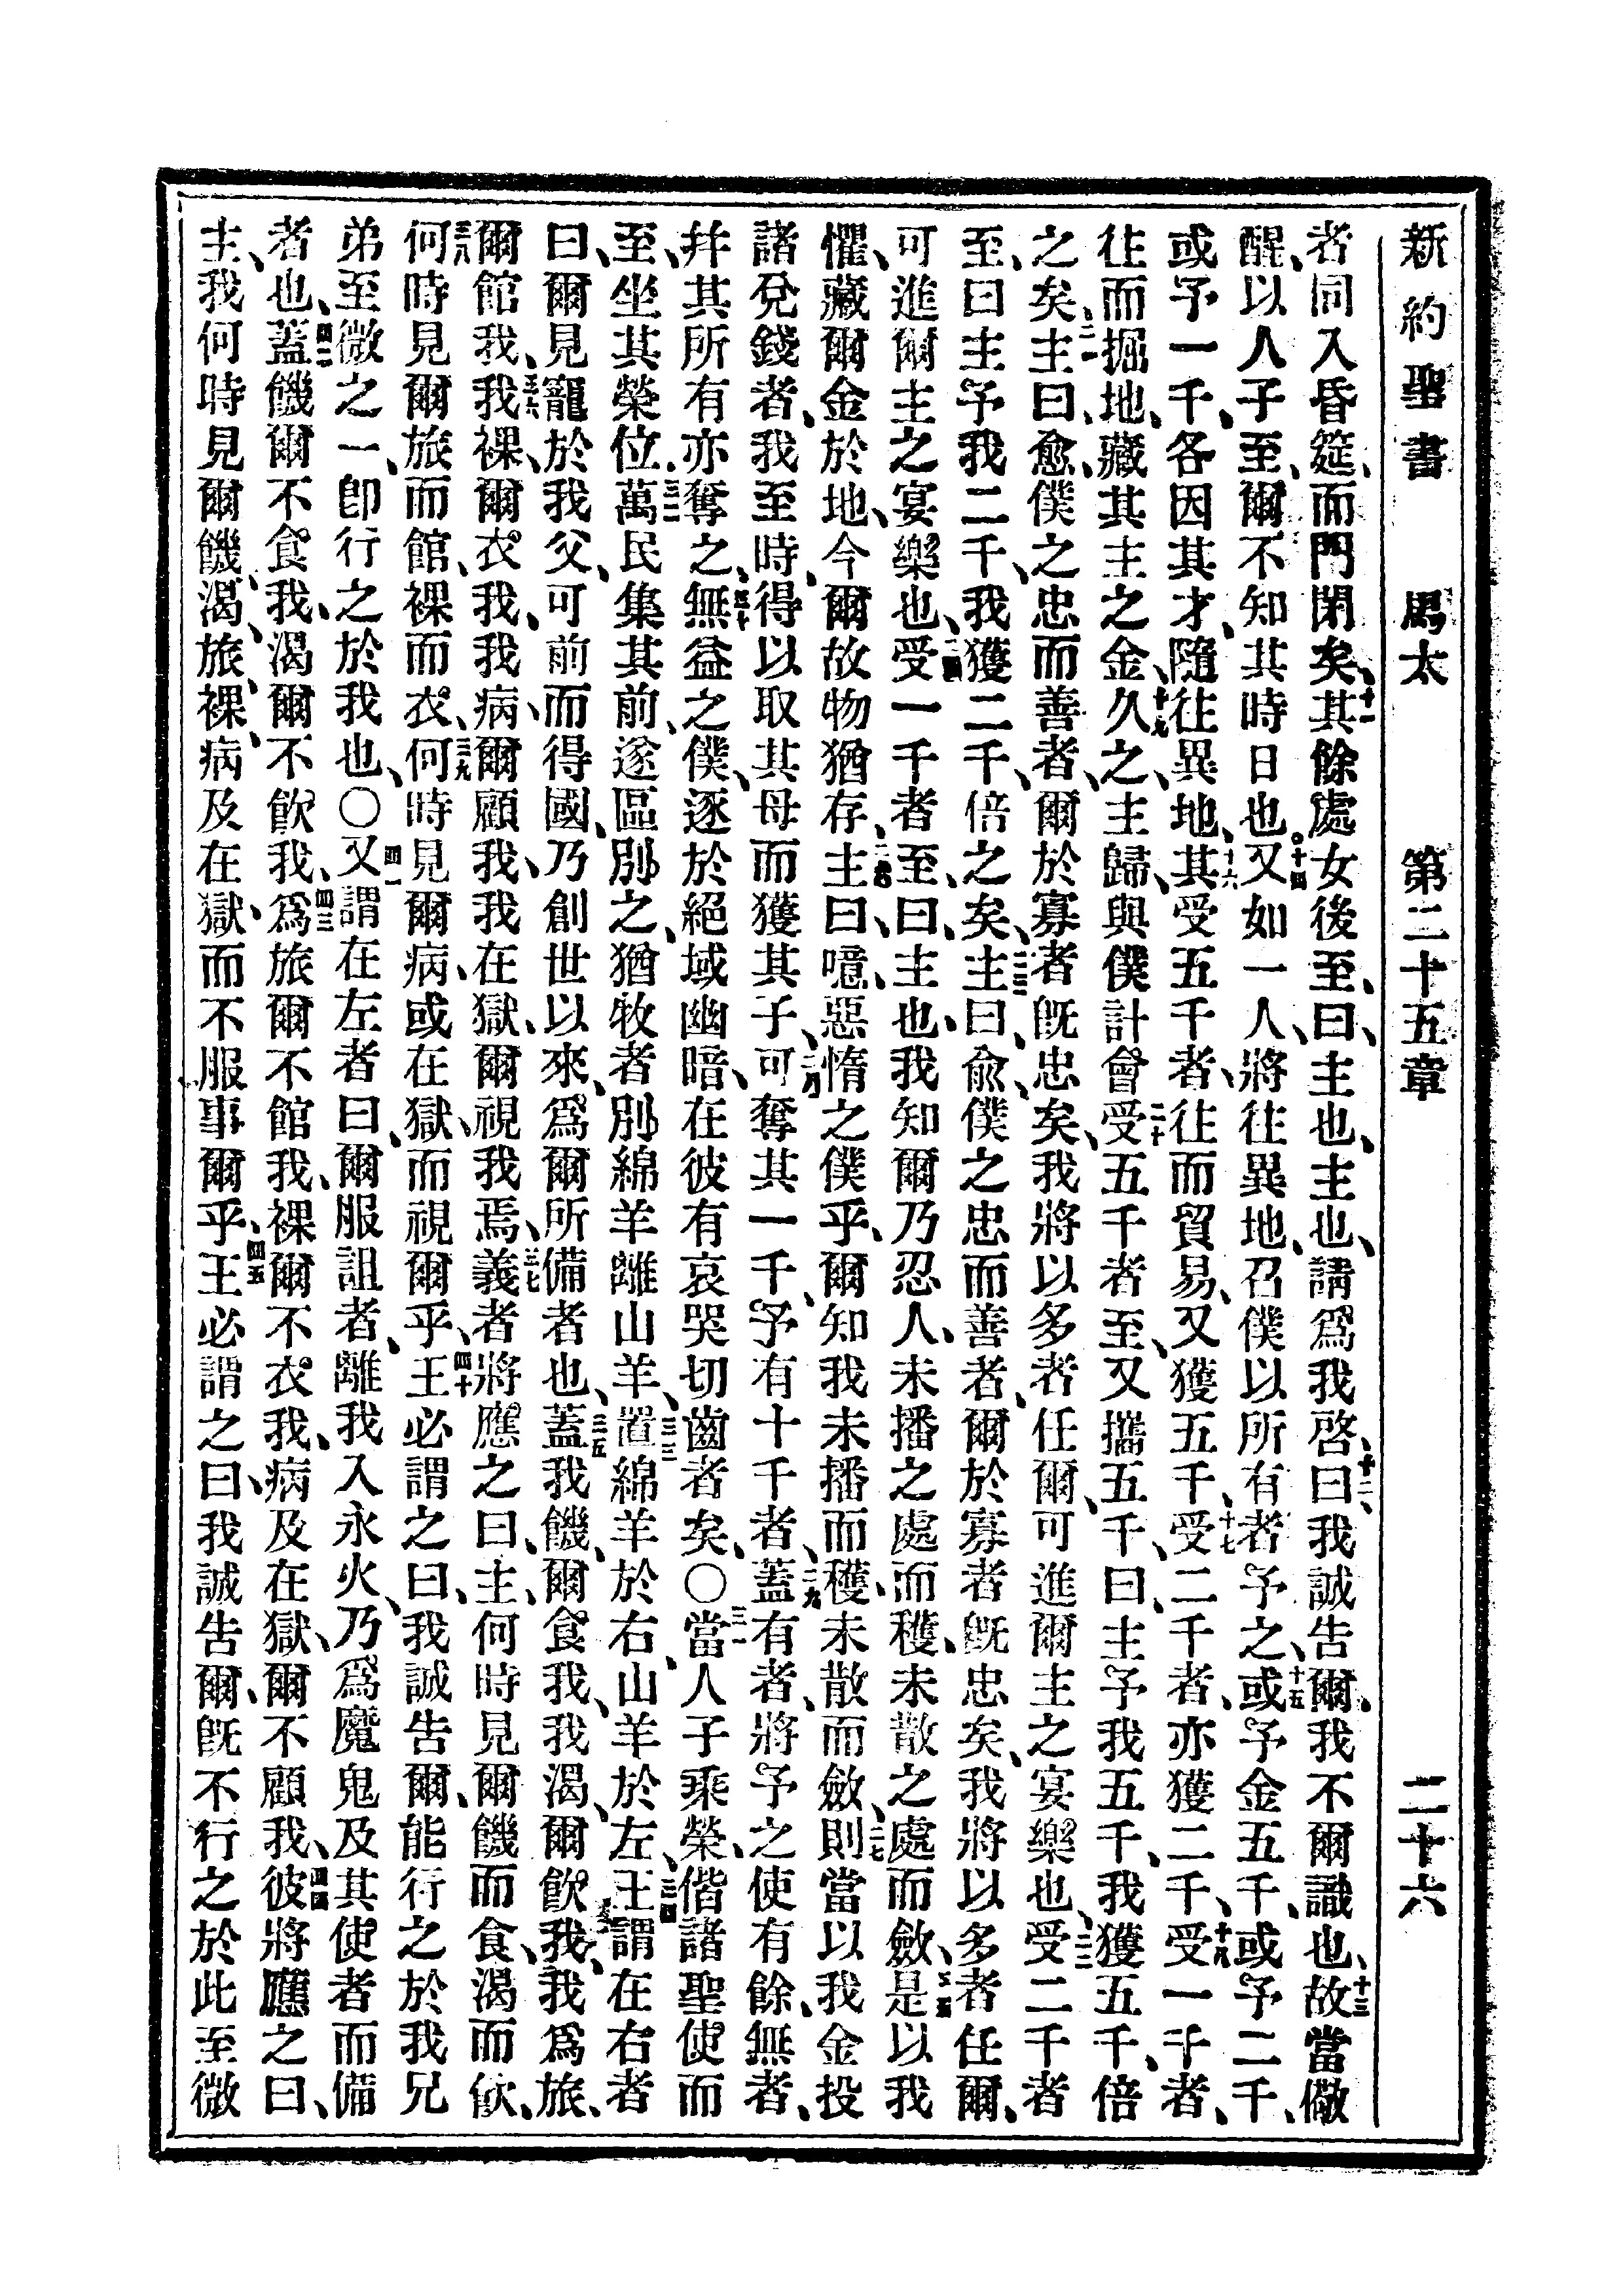 新約聖書 馬太 第二十五章 二十六
者同入昏筵、而門閉矣、十一其餘處女後至、曰、主也、主也、請爲我啓、十二曰、我誠告爾、我不爾識也、十三故當儆
醒、以人子至、爾不知其時日也。十四又如一人、將往異地、召僕以所有者予之、十五或予金五千、或予二千、
或予一千、各因其才、隨往異地、十六其受五千者、往而貿易、又獲五千、十七受二千者、亦獲二千、十八受一千者、
往而掘地、藏其主之金、十九久之、主歸、與僕計會、二十受五千者至、又攜五千、曰、主予我五千、我獲五千、倍
之矣、二一主曰、愈、僕之忠而善者、爾於寡者旣忠矣、我將以多者任爾、可進爾主之宴樂也、二二受二千者
至、曰主予我二千、我獲二千、倍之矣、二三主曰、兪、僕之忠而善者、爾於寡者旣忠矣、我將以多者任爾、
可進爾主之宴樂也、二四受一千者至、曰、主也、我知爾乃忍人、未播之處而穫、未散之處而斂、二五是以我
懼、藏爾金於地、今爾故物猶存、二六主曰、噫、惡惰之僕乎、爾知我未播而穫、未散而斂、二七則當以我金投
諸兌錢者、我至時、得以取其母而獲其子、二八可奪其一千、予有十千者、二九蓋有者、將予之使有餘、無者、
幷其所有亦奪之、三十無益之僕、逐於絕域幽暗、在彼有哀哭切齒者矣、〇三一當人子乘榮、偕諸聖使而
至、坐其榮位、三二萬民集其前、遂區別之、猶牧者別綿羊離山羊、三三置綿羊於右、山羊於左、三四王謂在右者
曰、爾見寵於我父、可前而得國、乃創世以來、爲爾所備者也、三五蓋我饑、爾食我、我渴、爾飮我、我爲旅、
爾館我、三六我裸、爾衣我、我病、爾顧我、我在獄、爾視我焉、三七義者將應之曰、主、何時見爾饑而食、渴而飮、
三八何時見爾旅而館、裸而衣、三九何時見爾病、或在獄、而視爾乎、四十王必謂之曰、我誠告爾、能行之於我兄
弟至微之一、卽行之於我也、〇四一又謂在左者曰、爾服詛者、離我入永火、乃爲魔鬼及其使者而備
者也、四二蓋饑爾不食我、渴爾不飮我、四三爲旅爾不館我、裸爾不衣我、病及在獄、爾不顧我、四四彼將應之曰、
主、我何時見爾饑、渴、旅、裸、病及在獄、而不服事爾乎、四五王必謂之曰、我誠告爾、旣不行之於此至微